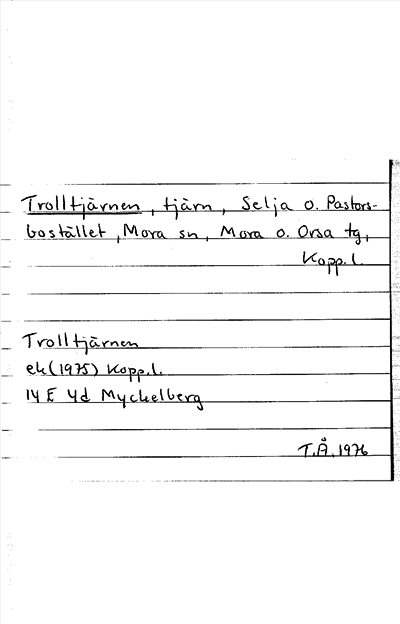 Trolltjärnen, tjärn, Selja o. Pastors-
bostället, Mora sn, Mora o. Orsa tg,
Kopp. l.
Trolltjärnen
ek (1975) Kopp. l.
14 E 4d Myckelberg
T.Å. 1976